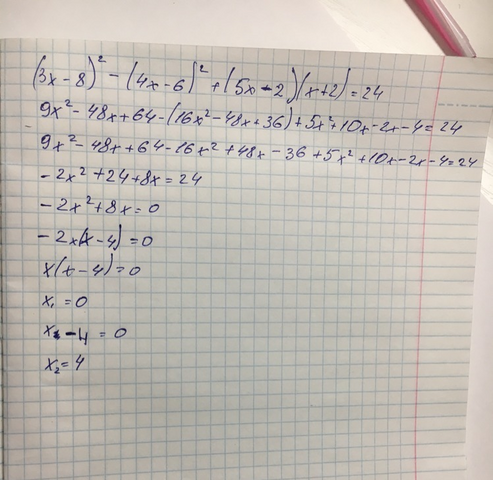 (3x-8)² - (4x-6)² + (5x-2)(x+2) = 24
9x² - 48x + 64 - (16x² - 48x + 36) + 5x² + 10x - 2x - 4 = 24
9x² - 48x + 64 - 16x² + 48x - 36 + 5x² + 10x - 2x - 4 = 24
-2x² + 24 + 8x = 24
-2x² + 8x = 0
-2x(x-4) = 0
x(x-4) = 0
x₁ = 0
x - 4 = 0
x₂ = 4